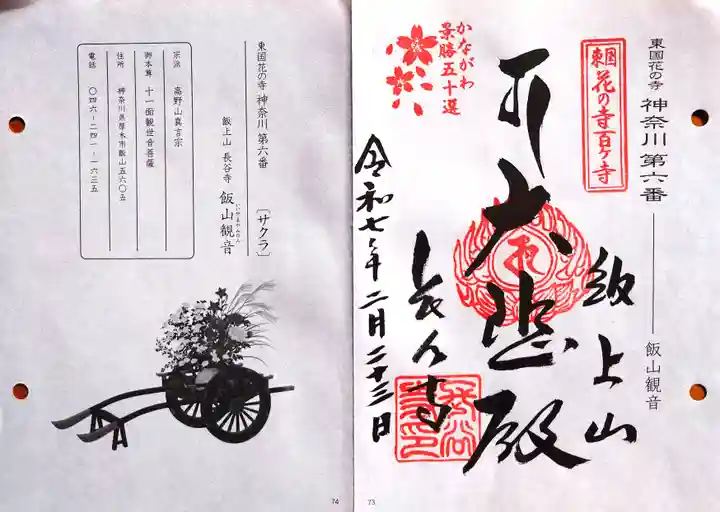 東国花の寺 神奈川 第六番
飯山観音
東国
花の寺百ヶ寺
かながわ
景勝五十選
飯上山
大悲殿
長谷寺
令和七年二月二十三日
73
東国花の寺 神奈川 第六番
〔サクラ〕
飯上山 長谷寺 飯山観音
いいやまかんのん
宗派 高野山真言宗
御本尊 十一面観世音菩薩
住所 神奈川県厚木市飯山五六〇五
電話 〇四六-二四一-一六三五
74